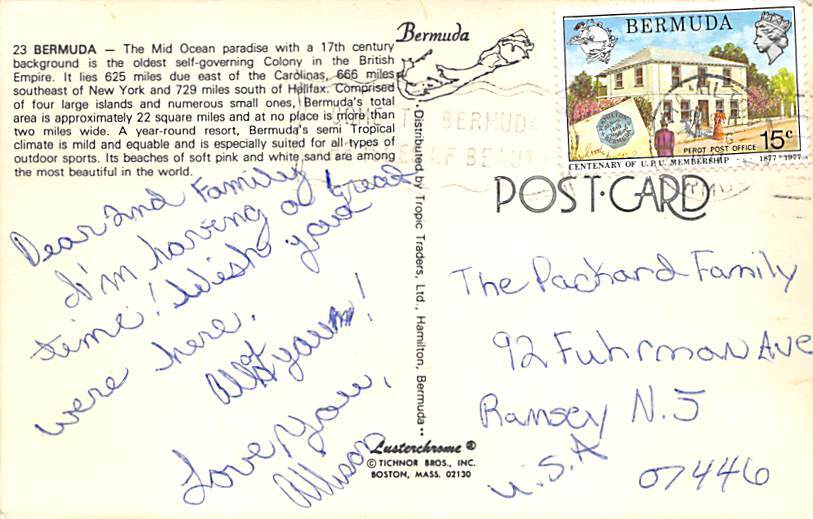 23 BERMUDA — The Mid Ocean paradise with a 17th century
background is the oldest self-governing Colony in the British
Empire. It lies 625 miles due east of the Carolinas, 666 miles
southeast of New York and 729 miles south of Halifax. Comprised
of four large islands and numerous small ones, Bermuda's total
area is approximately 22 square miles and at no place is more than
two miles wide. A year-round resort, Bermuda's semi Tropical
climate is mild and equable and is especially suited for all types of
outdoor sports. Its beaches of soft pink and white sand are among
the most beautiful in the world.
Dear 2nd Family
I'm having a great
time! Wish you
were here.
All of yours!
Love You,
Allison
Bermuda
Distributed by Tropic Traders, Ltd., Hamilton, Bermuda
Lusterchrome ®
© TICHNOR BROS., INC.
BOSTON, MASS. 02130
BERMUDA
PEROT POST OFFICE 15c
CENTENARY OF U.P.U. MEMBERSHIP 1877-1977
BERMUDA
OF BEAUT
POST·CARD
The Packard Family
92 Fuhrman Ave
Ramsey N.J
U.S.A
07446